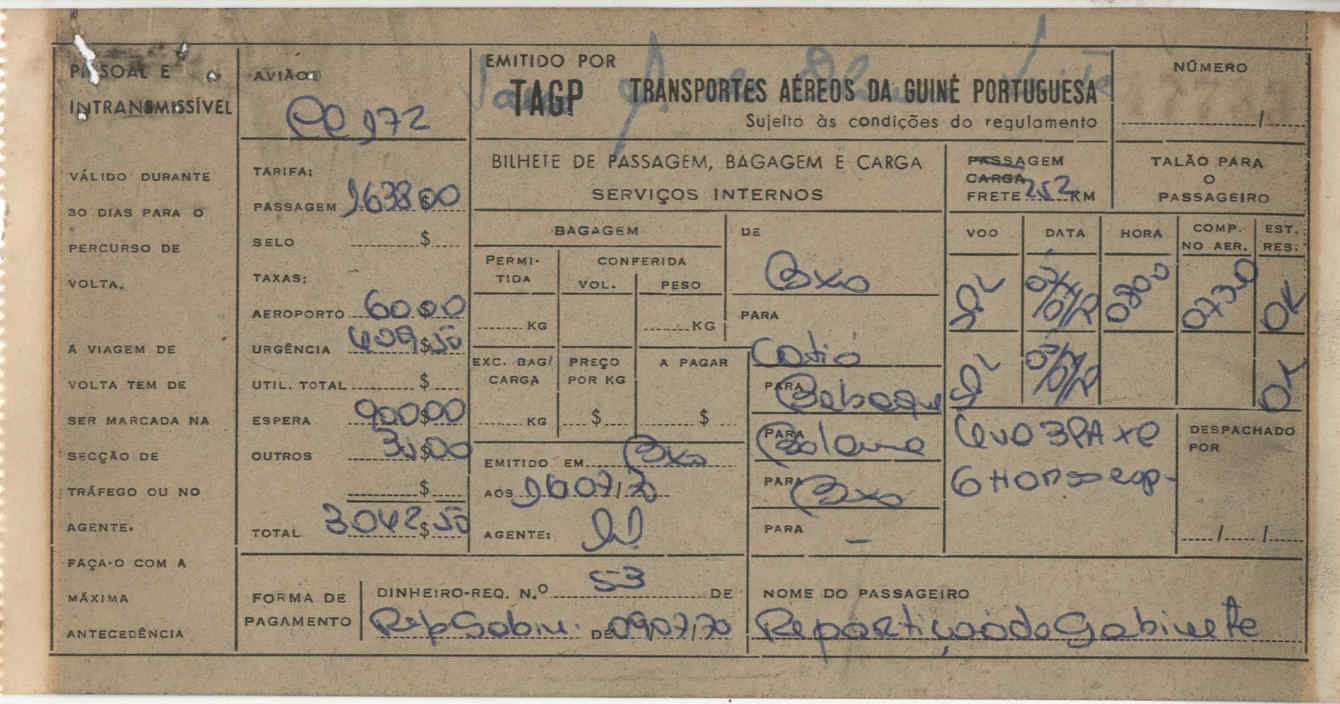 PESSOAL E
INTRANSMISSÍVEL
VÁLIDO DURANTE
30 DIAS PARA O
PERCURSO DE
VOLTA.
A VIAGEM DE
VOLTA TEM DE
SER MARCADA NA
SECÇÃO DE
TRÁFEGO OU NO
AGENTE.
FAÇA-O COM A
MÁXIMA
ANTECEDÊNCIA
AVIÃO
172
TARIFA:
PASSAGEM 1.638$00
SELO $
TAXAS:
AEROPORTO 60$00
URGÊNCIA 409$50
UTIL. TOTAL $
ESPERA 900$00
OUTROS $00
$
TOTAL 3.042$50
EMITIDO POR
TAGP TRANSPORTES AÉREOS DA GUINÉ PORTUGUESA
Sujeito às condições do regulamento
BILHETE DE PASSAGEM, BAGAGEM E CARGA
SERVIÇOS INTERNOS
BAGAGEM
PERMI-
TIDA
CONFERIDA
VOL. PESO
KG KG
EXC. BAG/
CARGA
PREÇO
POR KG
A PAGAR
KG $ $
EMITIDO EM Bxo
AOS 16.07.70
AGENTE:
DE
Bxo
PARA
Catió
PARA Bubaque
PARA Bolama
PARA Bxo
PARA –
NÚMERO
/
PASSAGEM
CARGA
FRETE 252 KM
TALÃO PARA
O
PASSAGEIRO
VOO DATA HORA COMP.
NO AER. EST.
RES.
0800 0730 OK
OK
DESPACHADO
POR
/ /
FORMA DE
PAGAMENTO
DINHEIRO-REQ. N.º 53 DE
Rep Gabin. DE 09.07.70
NOME DO PASSAGEIRO
Repartição do Gabinete